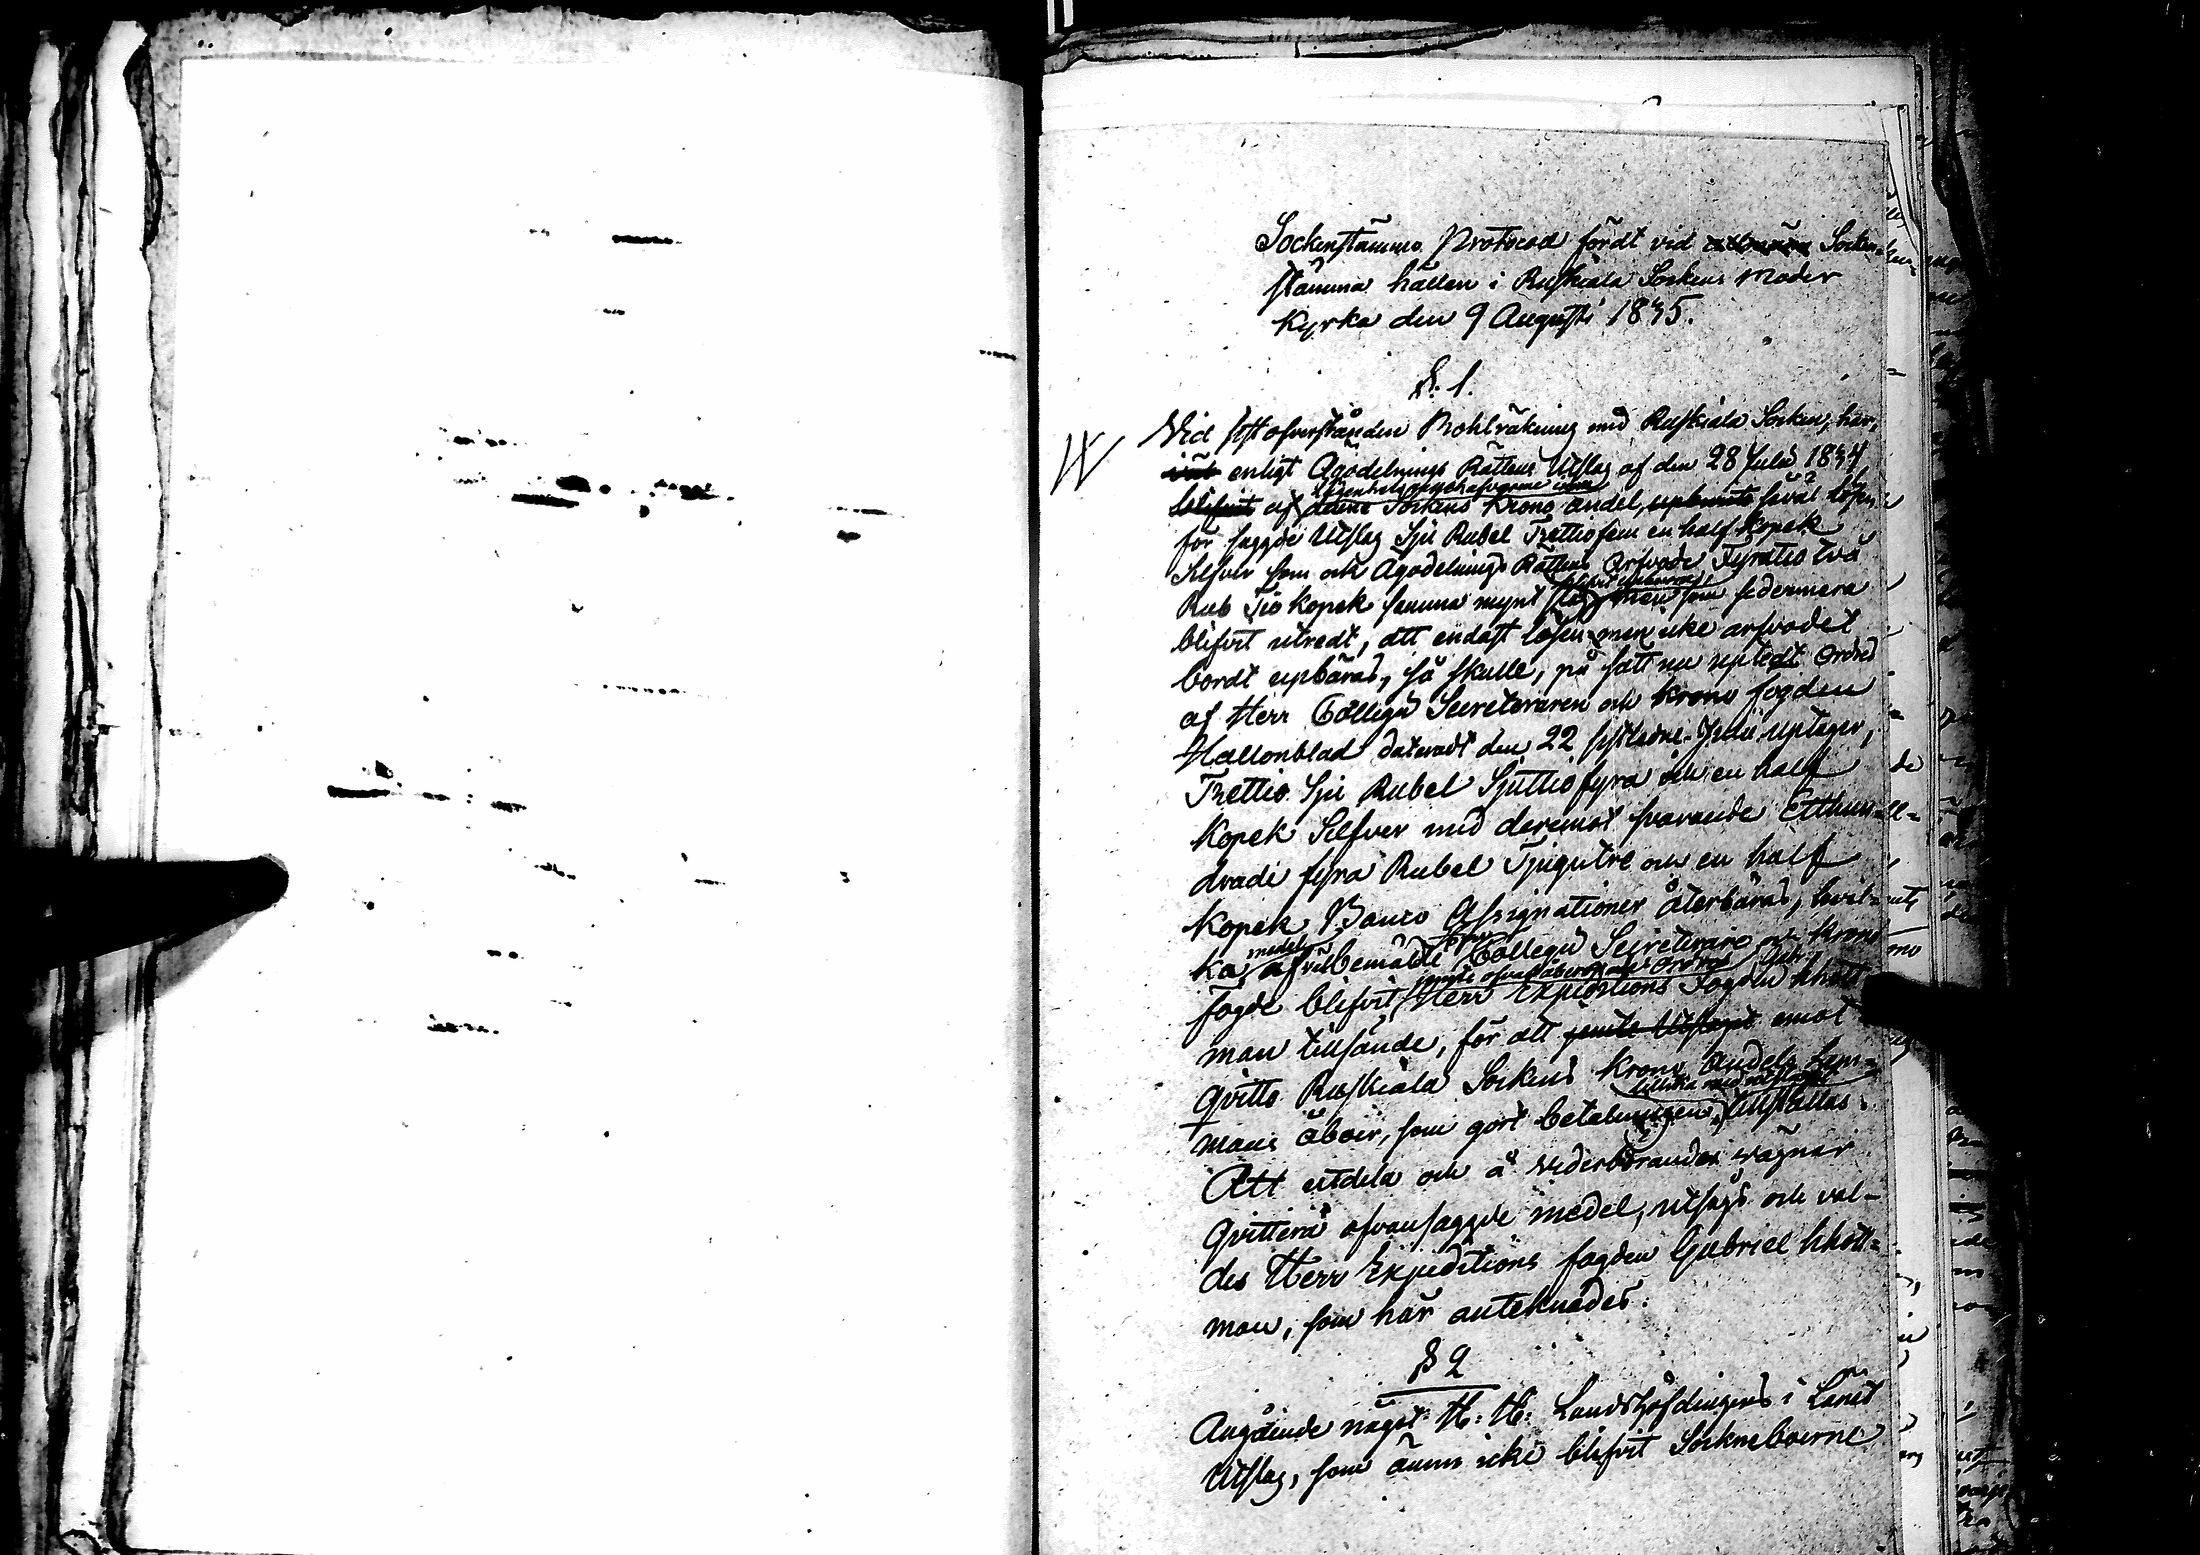 Sockenstämmo Protocol fördt vid allmän Socken-
stämma hållen i Ruskiala Sockens Moder
Kyrka den 9 Augusti 1835.
§. 1.
Vid sistofverståndne Bohlräkning med Ruskiala Socken, har,
enligt Ägodelnings Rättens Utslag af den 28 Julii 1834
blifvit af Sockens Krono andel, såväl lösen
för sagde Utslag Sju Rubel Trettiofem en half kopek
Silfver som och Ägodelnings Rättens Arfvode Fyratio två
Rub Tio kopek samma mynt men som sedermera
blifvit utredt, att endast lösen men icke arfvodet
bordt upbäras, så skulle, på sätt nu uptedt Ordres
af Herr Collegii Secreteraren och Krono fogden
Hallonblad dateradt den 22 sistledne Julii uptager,
Trettio Sju Rubel Sjuttiofyra och en half
kopek Silfver med deremot svarande Etthun-
drade fyra Rubel Tjugutre och en half
kopek Banco Assignationer återbäras, hvil-
ka medel af välbemälde Herr Collegii Secreterare och Krono
fogde blifvit jemte ofvanåberopade Ordres Herr Expeditions Fogden Khott
man tillsände, för att jemte Utslaget emot
qvitto Ruskiala Sockens Krono Andels Hem-
mans åboer, som gort betalningen, tillställas.
Att utdela och å vederbörandes vägnar
qvittera ofvansagde medel, utsågs och val-
des Herr Expeditions fogden Gabriel Khott-
man, som här antecknades.
§ 2
Angående något H: H: Landshöfdingens i Länet
Utslag, som ännu icke blifvit Sockneboerne